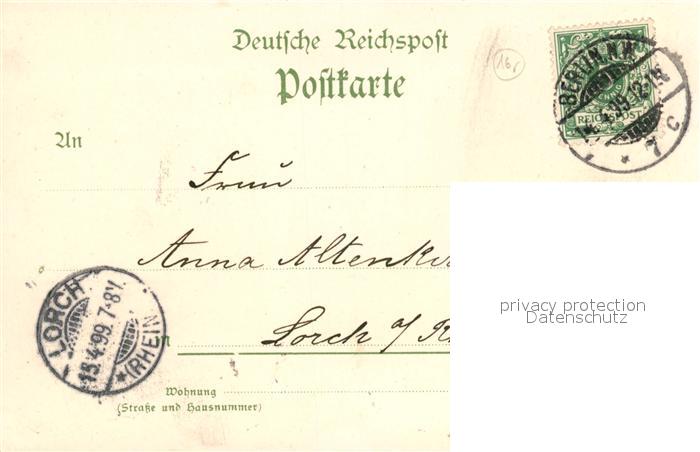 Deutsche Reichspost
Postkarte
16,
BERLIN, N.W.
7 C
REICHSPOST
An
Frau
Anna Altenki
Lorch a/ R
in
LORCH
13.4.99. 7-8V.
(RHEIN)
Wohnung
(Straße und Hausnummer)
privacy protection
Datenschutz